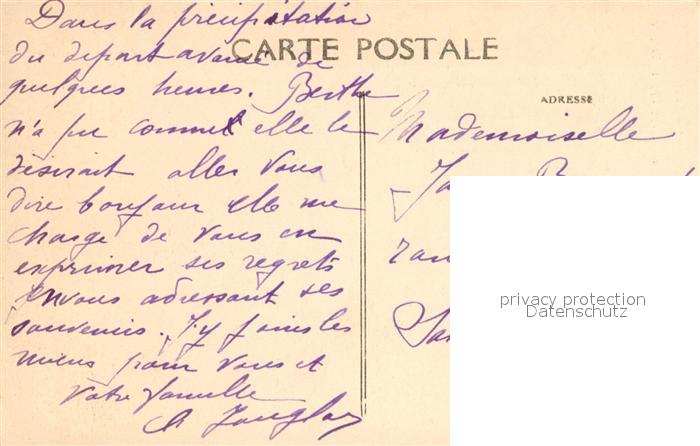 Dans la précipitation
du depart avancé de
CARTE POSTALE
quelques heures. Berthe
n'a pu comme elle le
désirait aller vous
dire bonjour elle me
charge de vous en
exprimer ses regrets
en vous adressant ses
souvenirs. J'y joins les
miens pour vous et
votre famille
ADRESSE
Mademoiselle
privacy protection
Datenschutz